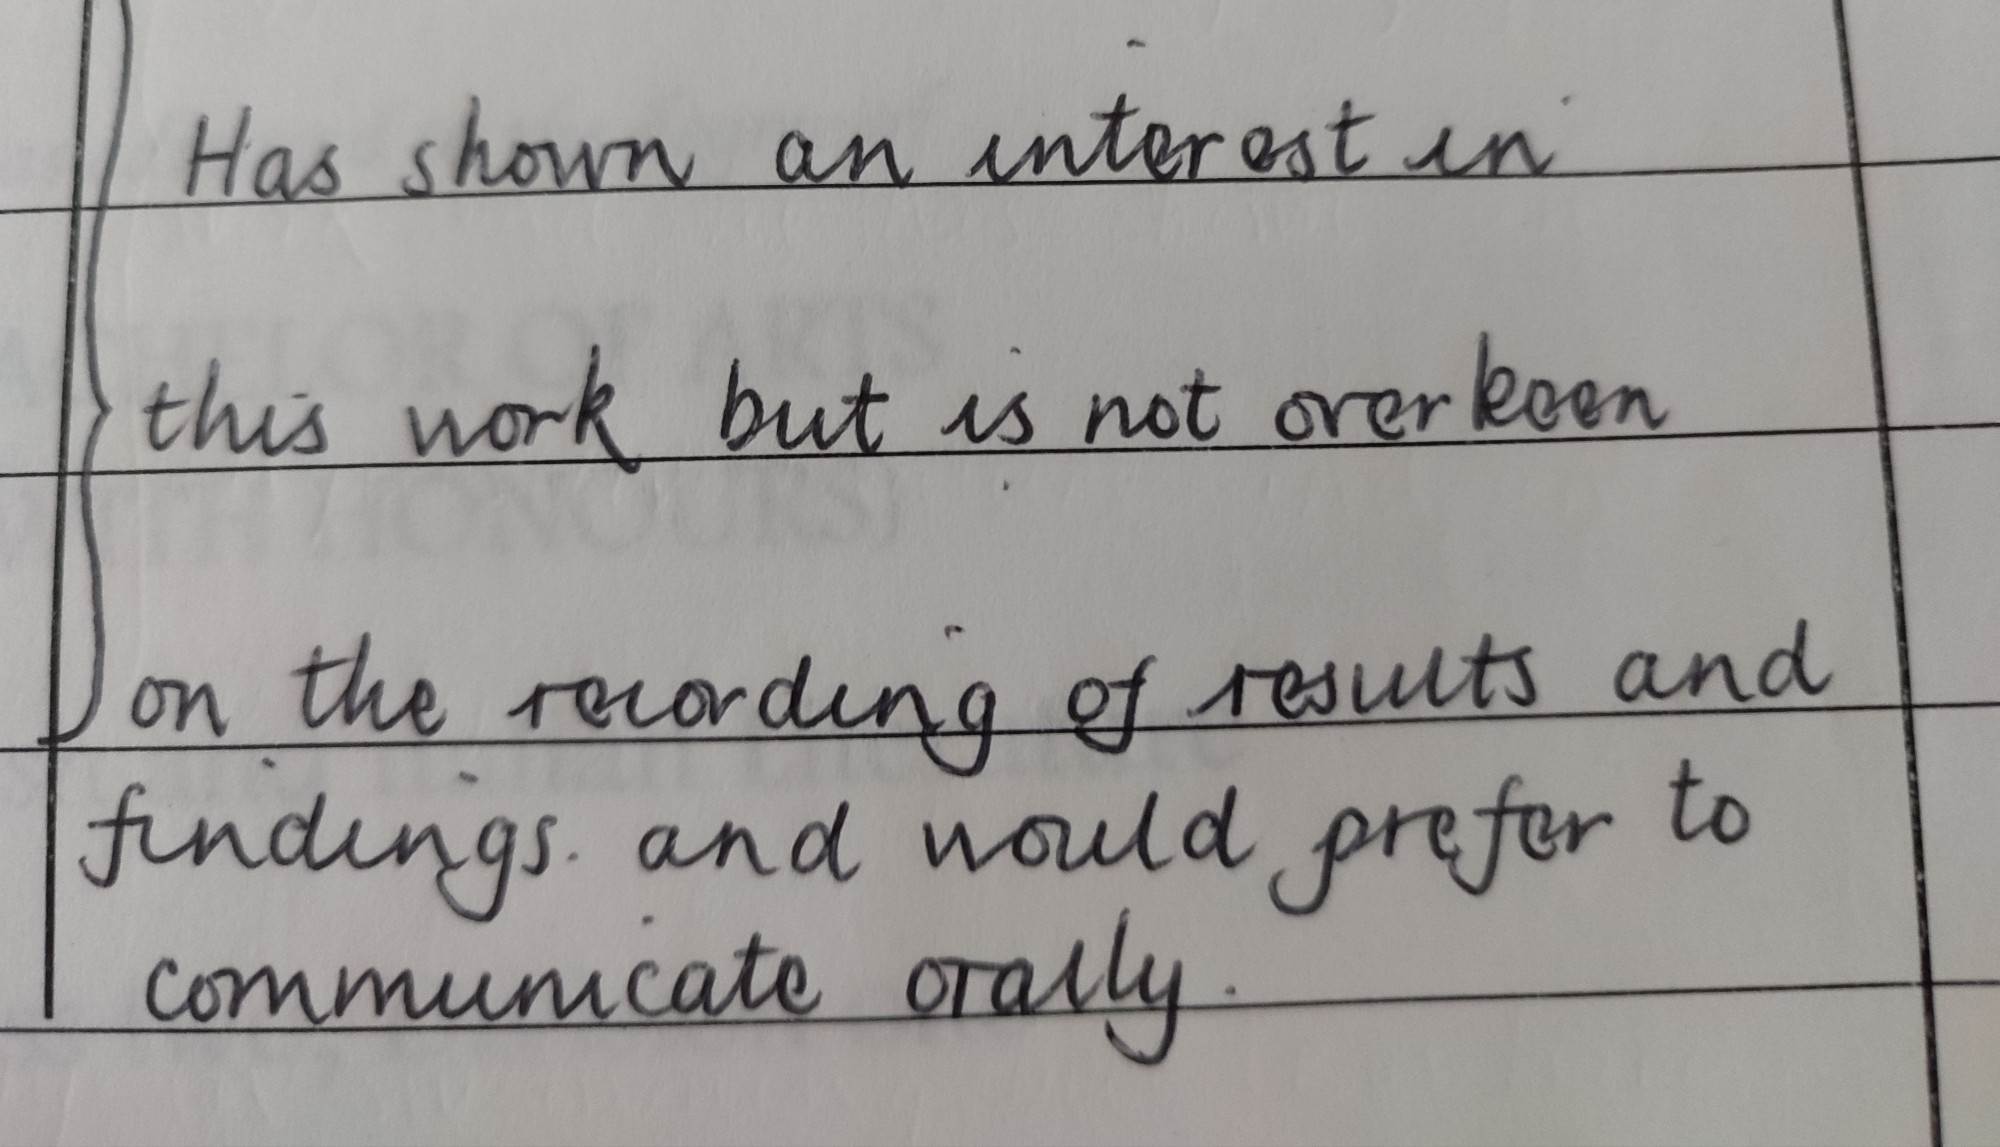 Has shown an interest in
this work but is not over keen
on the recording of results and
findings. and would prefer to
communicate orally.
BACHELOR OF ARTS
WITH HONOURS)